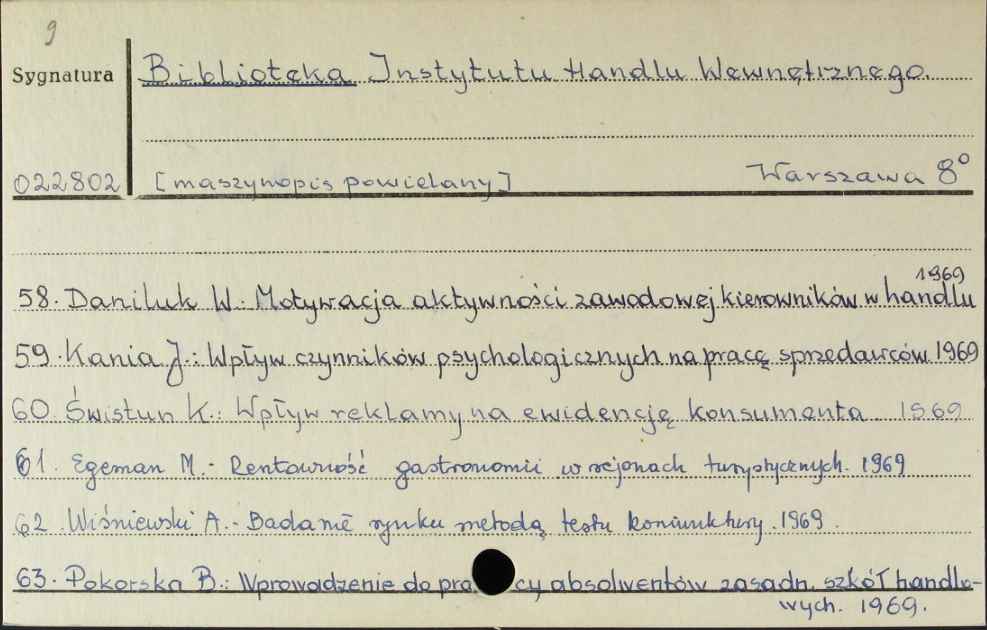 9
Sygnatura Biblioteka Instytutu Handlu Wewnętrznego.
022802 [maszynopis powielany] Warszawa 8°
1969
58. Daniluk W.: Motywacja aktywności zawodowej kierowników w handlu
59. Kania J.: Wpływ czynników psychologicznych na pracę sprzedawców 1969
60. Świstun K.: Wpływ reklamy na ewidencję konsumenta. 1969
61. Egeman M.- Rentowność gastronomii w rejonach turystycznych. 1969
62. Wiśniewski A.- Badanie rynku metodą testu koniunktury. 1969.
63. Pokorska B.: Wprowadzenie do pracy absolwentów zasadn. szkół handlo-
wych. 1969.